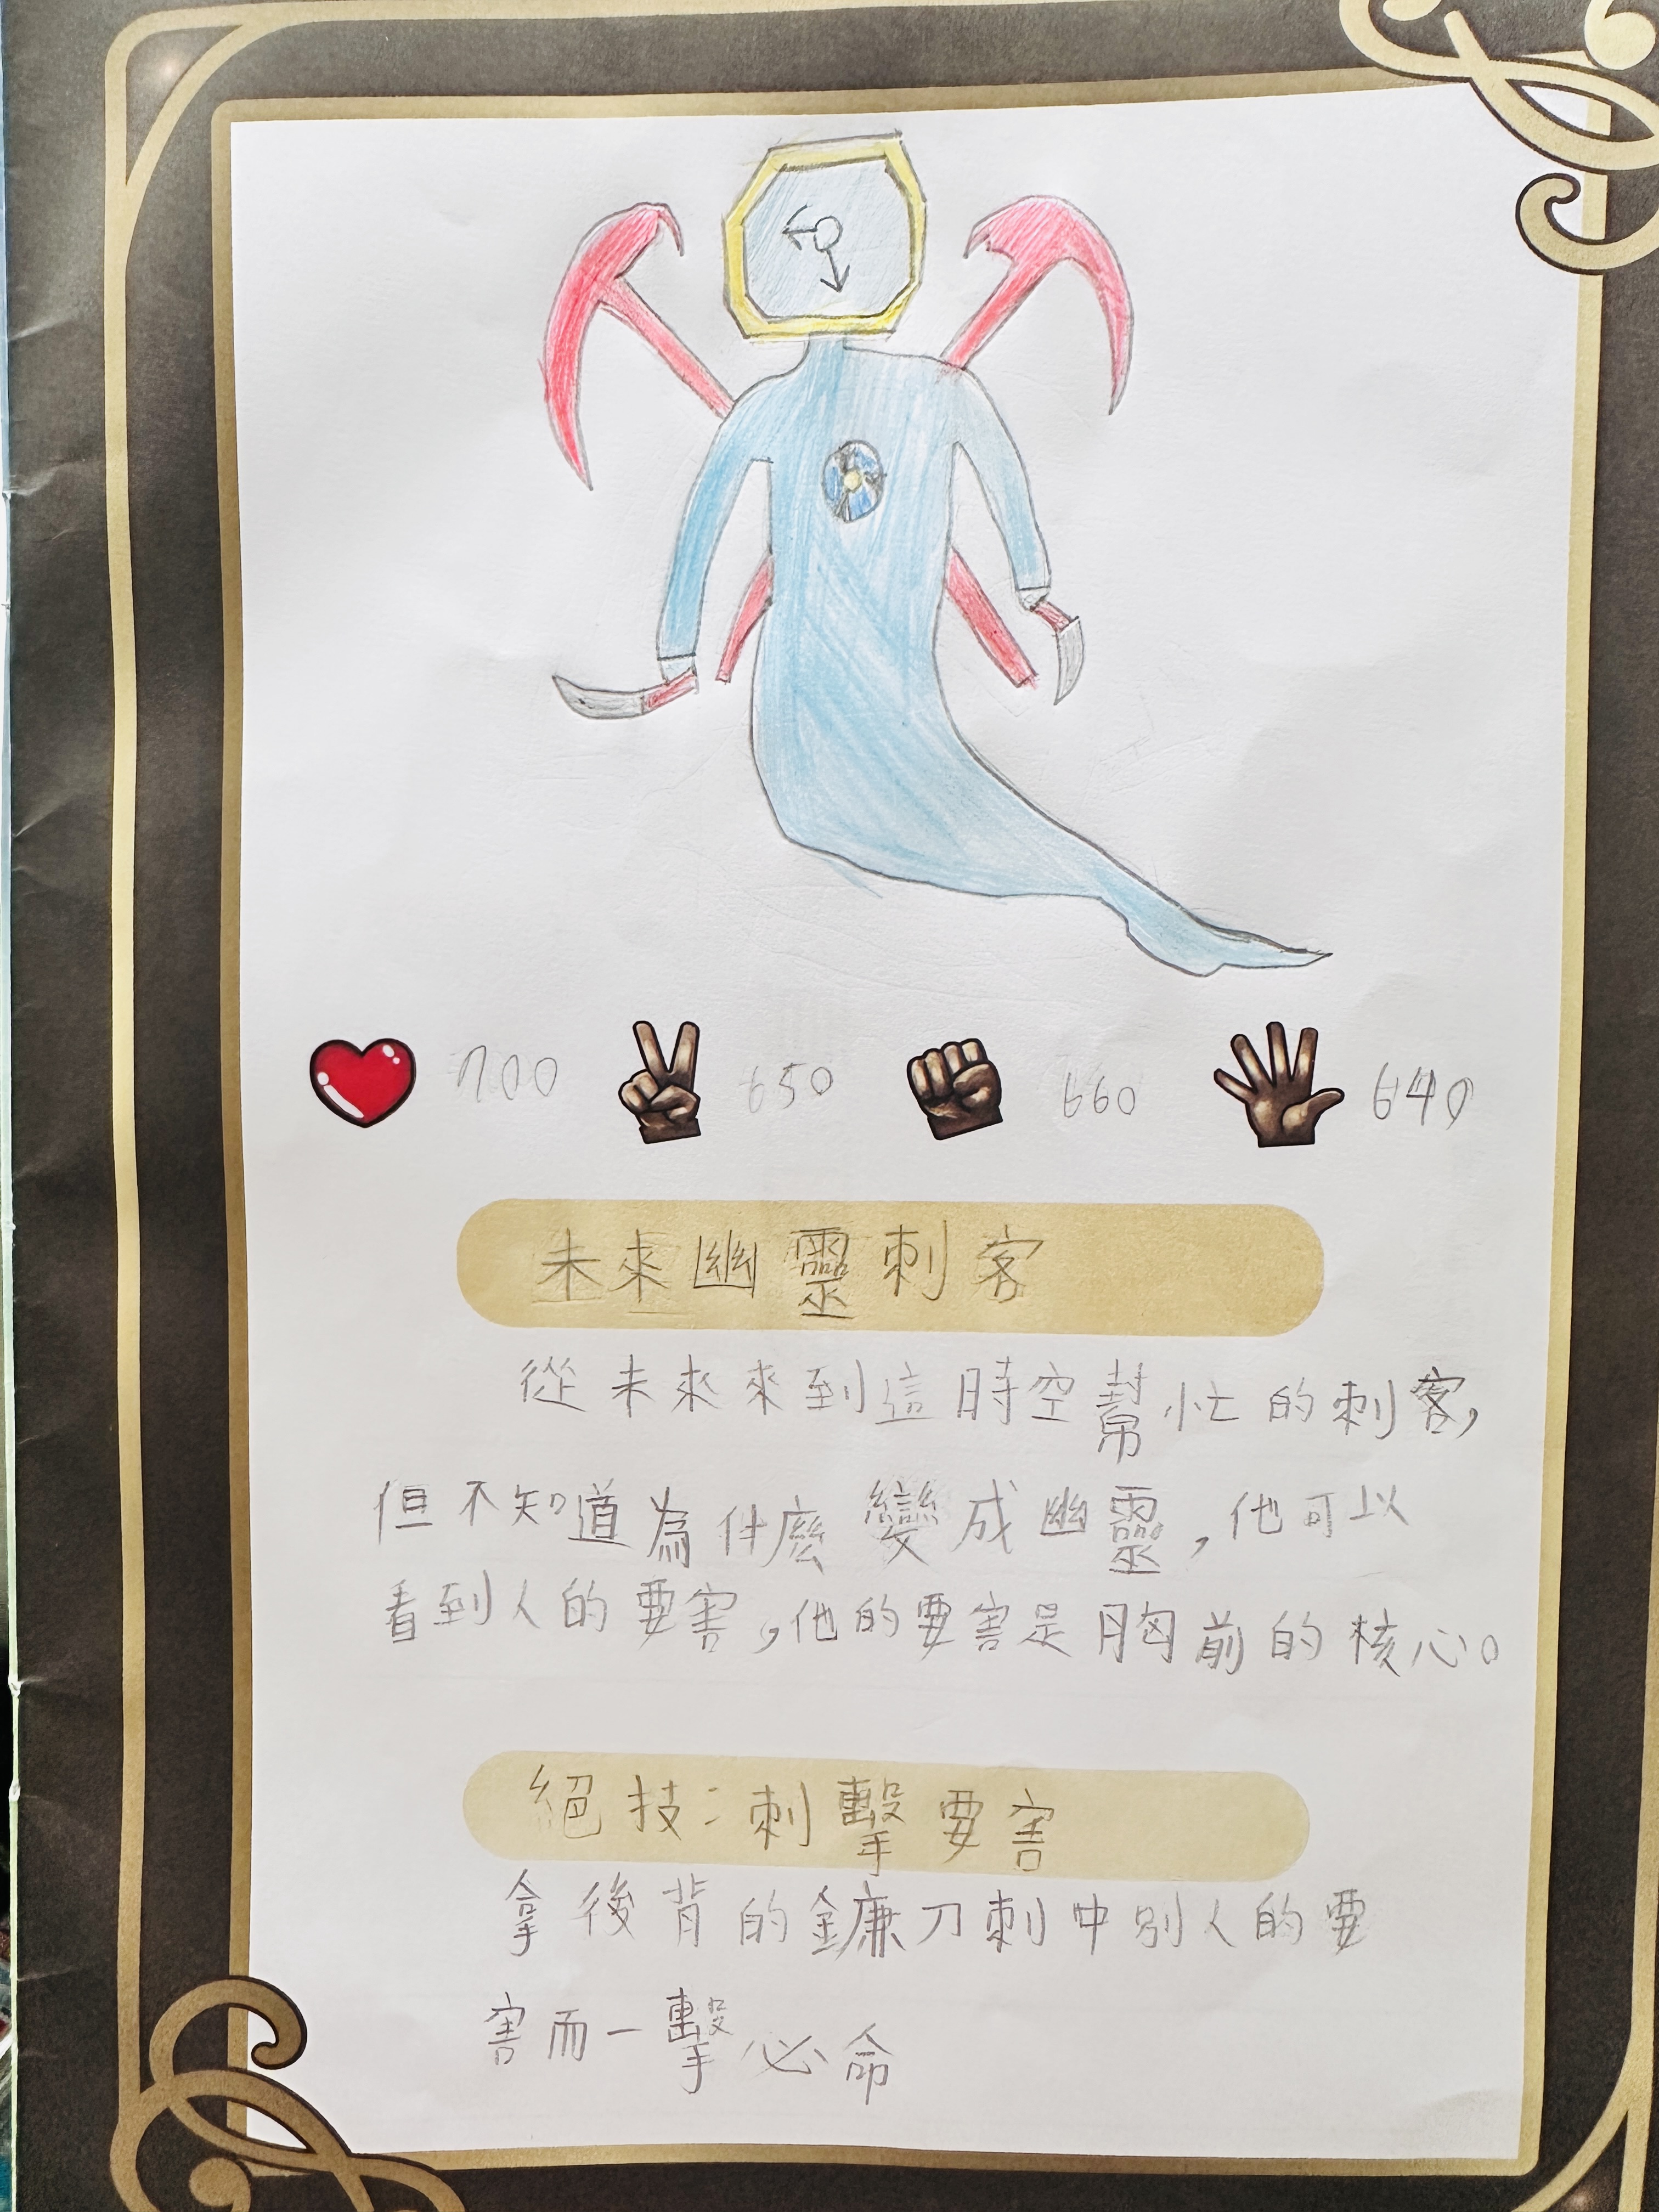 700 650 660 640
未來幽靈刺客
從未來來到這時空幫忙的刺客,
但不知道為什麼變成幽靈,他可以
看到人的要害,他的要害是胸前的核心。
絕技:刺擊要害
拿後背的鐮刀刺中別人的要
害而一擊必命